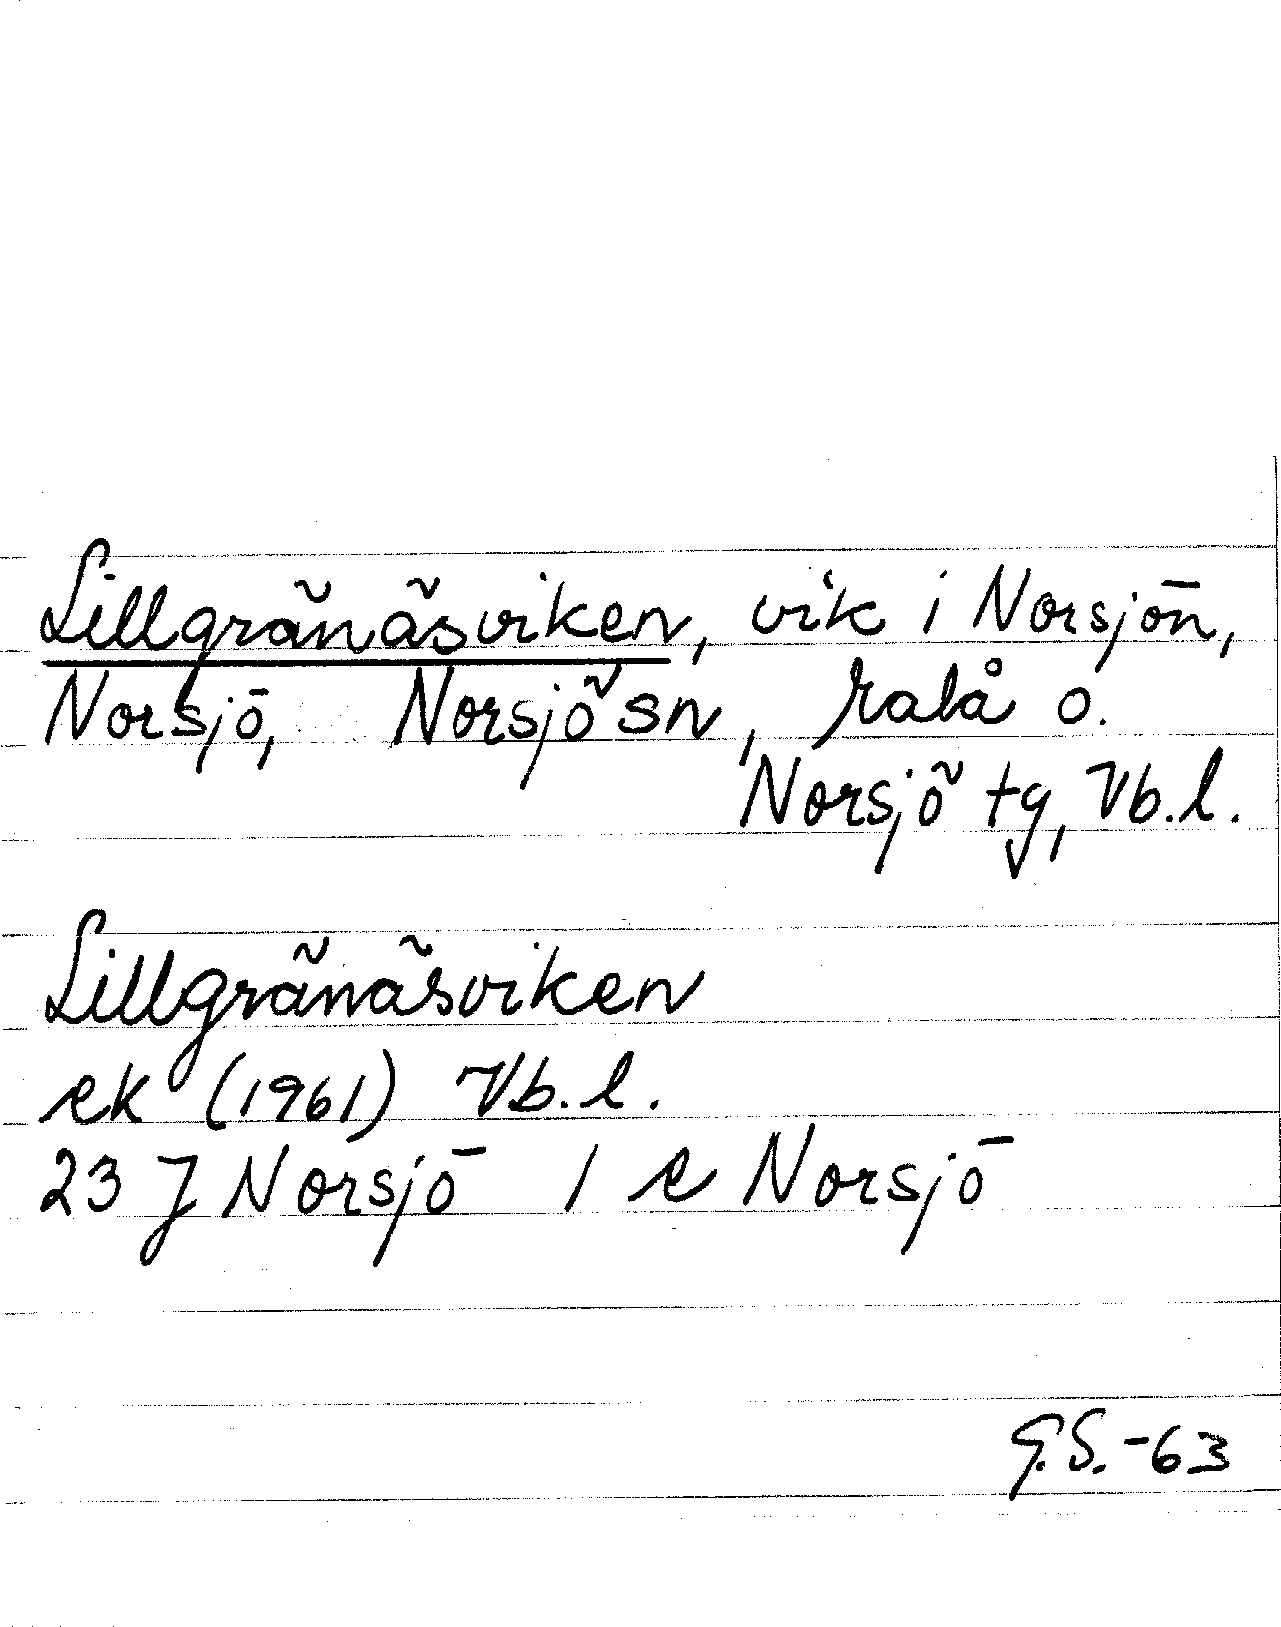 Lillgränäsviken, vik i Norsjön,
Norsjö, Norsjö sn, Malå o.
Norsjö tg, Vb.l.
Lillgränäsviken
ek (1961) Vb.l.
23 J Norsjö 1 e Norsjö
G.S.-63